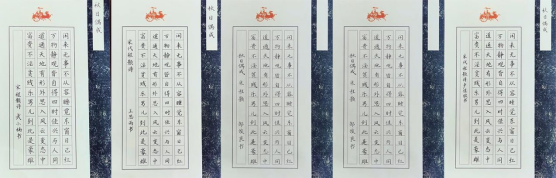 秋日偶成
闲来无事不从容睡觉东窗日已红
万物静观皆自得四时佳兴与人同
道通天地有形外思入风云变态中
富贵不淫贫贱乐男儿到此是豪雄
宋程颢诗
秋日偶成
闲来无事不从容睡觉东窗日已红
万物静观皆自得四时佳兴与人同
道通天地有形外思入风云变态中
富贵不淫贫贱乐男儿到此是豪雄
宋代程颢诗
闲来无事不从容睡觉东窗日已红
万物静观皆自得四时佳兴与人同
道通天地有形外思入风云变态中
富贵不淫贫贱乐男儿到此是豪雄
秋日偶成
闲来无事不从容睡觉东窗日已红
万物静观皆自得四时佳兴与人同
道通天地有形外思入风云变态中
富贵不淫贫贱乐男儿到此是豪雄
秋日偶成
秋日偶成
闲来无事不从容睡觉东窗日已红
万物静观皆自得四时佳兴与人同
道通天地有形外思入风云变态中
富贵不淫贫贱乐男儿到此是豪雄